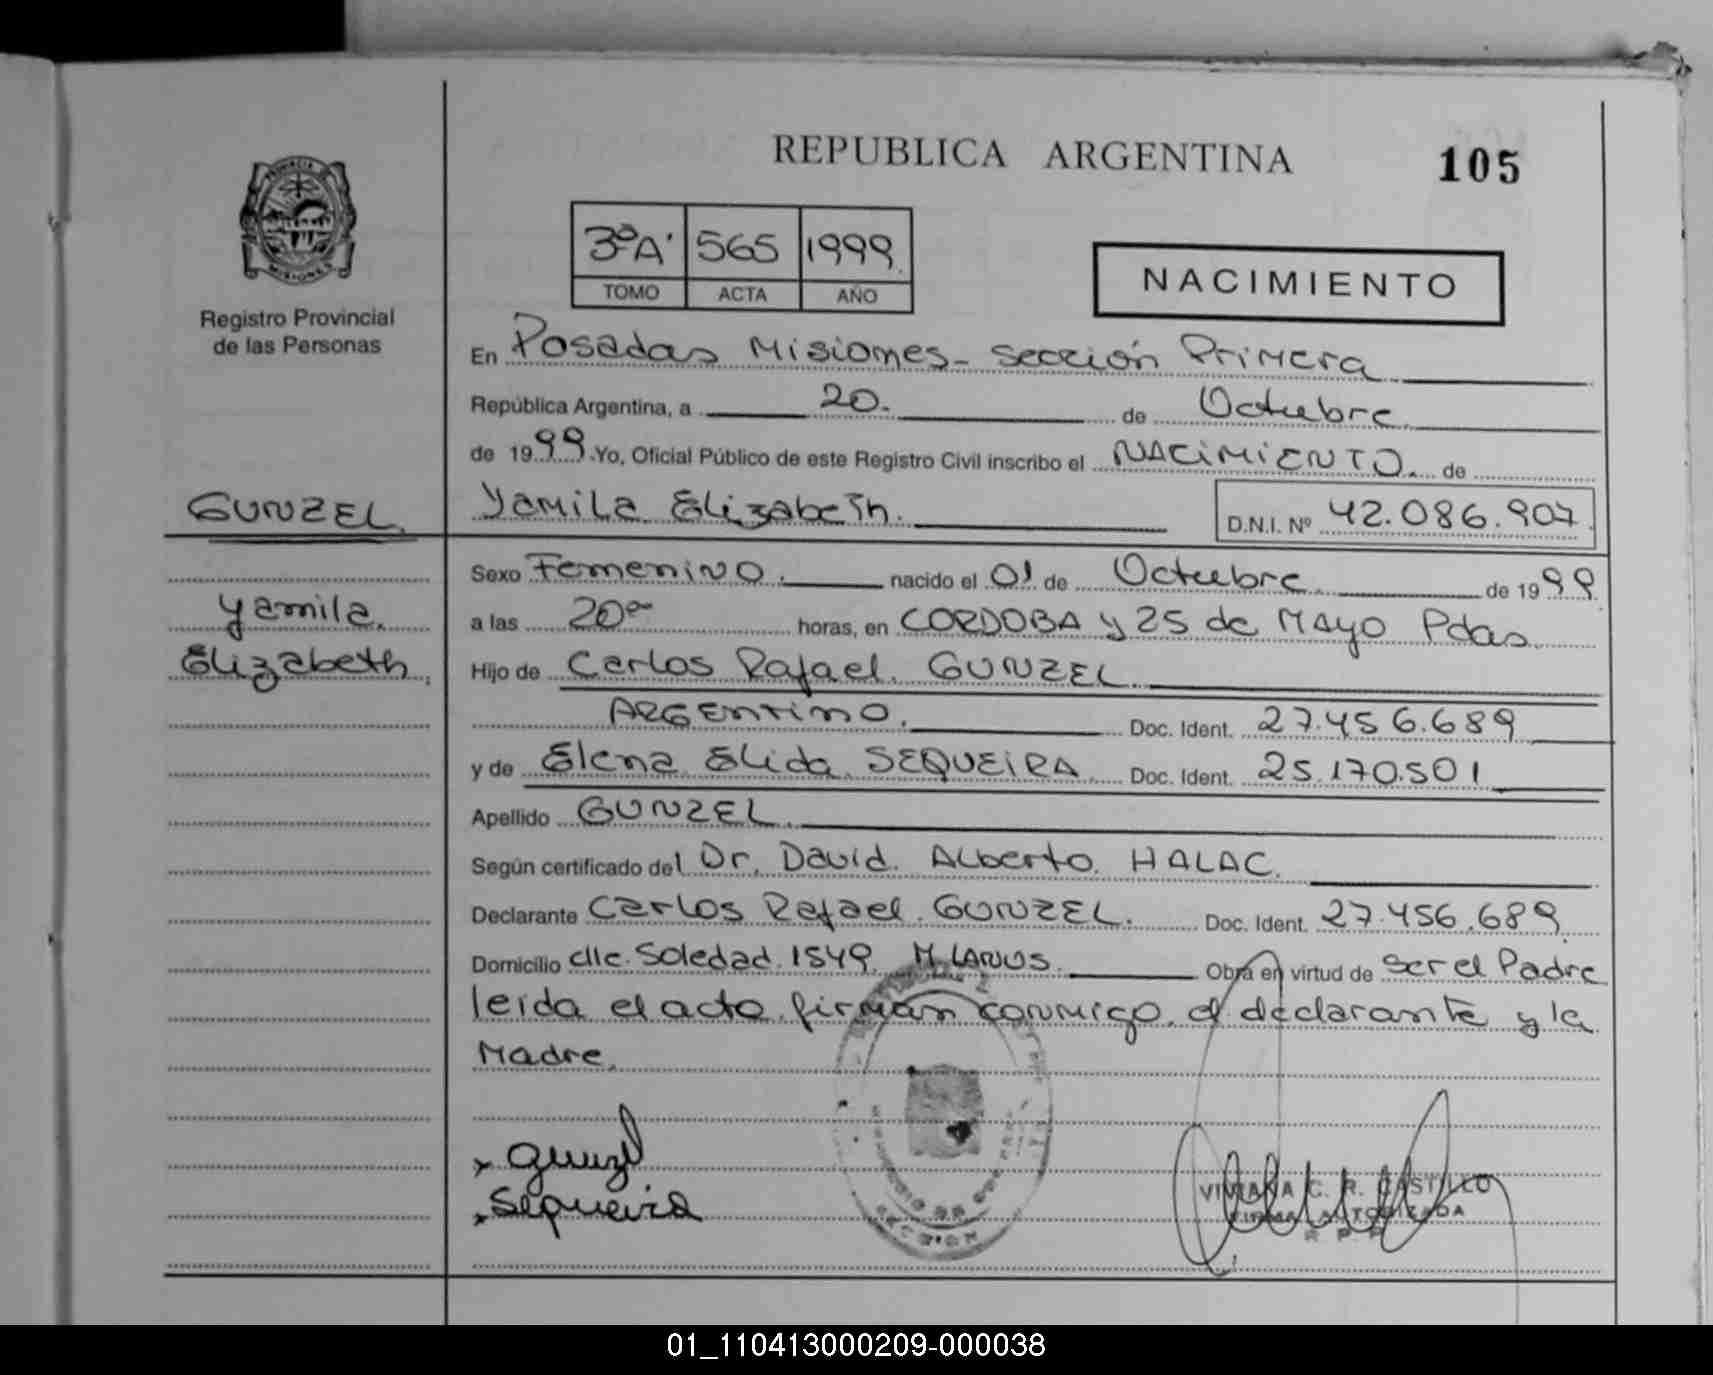 REPUBLICA ARGENTINA 105
3ºA 565 1999.
TOMO ACTA AÑO
NACIMIENTO
PROVINCIA DE MISIONES
Registro Provincial
de las Personas
En Posadas Misiones - sección Primera
República Argentina, a 20. de Octubre.
de 1999. Yo, Oficial Público de este Registro Civil inscribo el NACIMIENTO. de
GUNZEL. Yamila Elizabeth. D.N.I. Nº 42.086.907.
Sexo Femenino. nacido el 01 de Octubre. de 1999.
Yamila. a las 20ºº horas, en CORDOBA y 25 de MAYO Pdas.
Elizabeth. Hijo de Carlos Rafael. GUNZEL.
ARGENTINO. Doc. Ident. 27.456.689
y de Elena Elida. SEQUEIRA. Doc. Ident. 25.170.501
Apellido GUNZEL.
Según certificado del Dr. David. Alberto. HALAC.
Declarante Carlos Rafael. GUNZEL. Doc. Ident. 27.456.689.
Domicilio clle. Soledad. 1549. M. LARUS. Obra en virtud de ser el Padre
leida el acto firman conmigo. el declarante y la
Madre.
x Gunzel
x Sequeira
VIVIANA C. R. CASTILLO
FIRMA AUTORIZADA
R P P
01_110413000209-000038